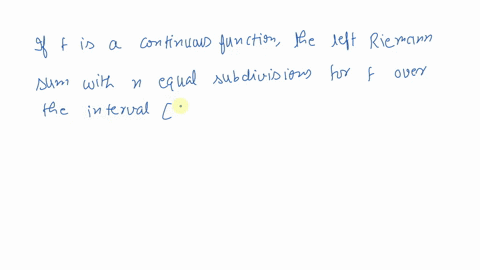 If f is a continuous function, the left Riemann
sum with n equal subdivisions for f over
the interval [